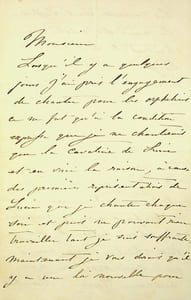 Monsieur
Lorsqu'il y a quelques
jours j'ai pris l'engagement
de chanter pour les orphelins
ce ne fut qu'à la condition
expresse que je ne chanterais
que la cavatine de Lucie
et en voici la raison, à cause
des premières représentations de
Lucie que je chante chaque
soir et puis ne pouvant rien
travailler tant je suis souffrante
maintenant je vous dirais qu'il
y a une loi nouvelle pour